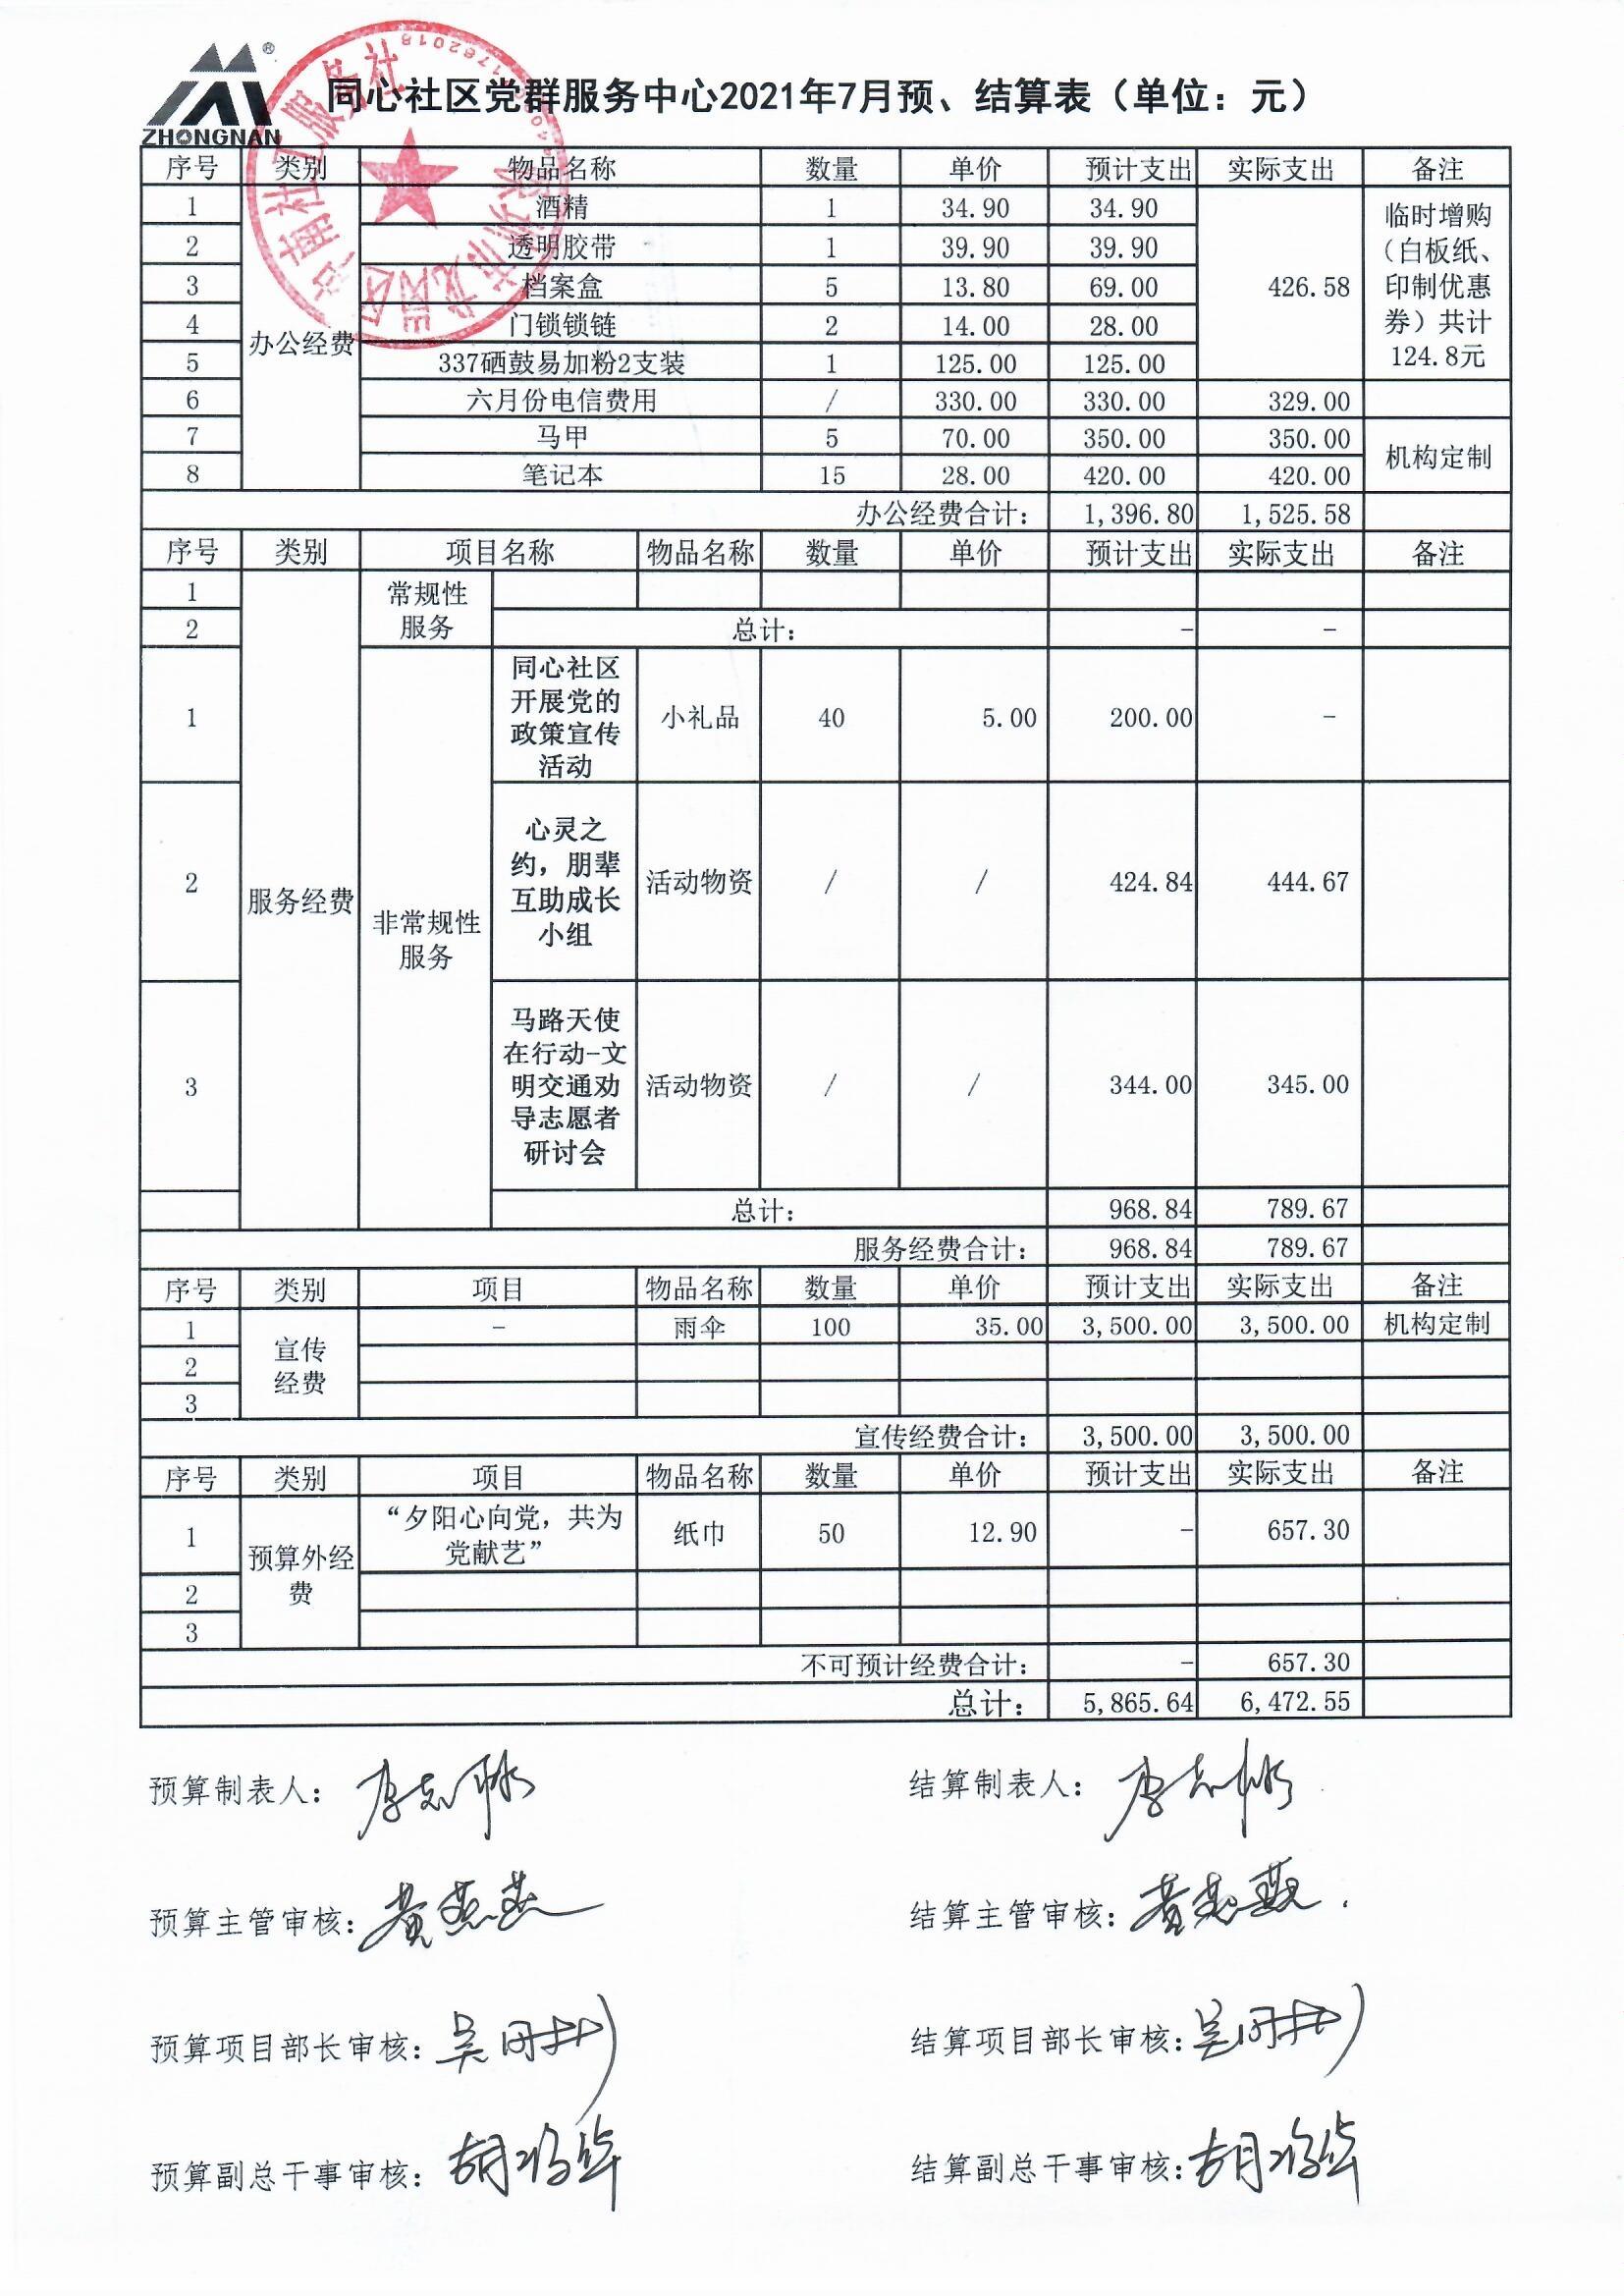 ZHONGNAN ®
同心社区党群服务中心2021年7月预、结算表（单位：元）
序号 类别 物品名称 数量 单价 预计支出 实际支出 备注
1 酒精 1 34.90 34.90
2 透明胶带 1 39.90 39.90
3 档案盒 5 13.80 69.00
4 门锁锁链 2 14.00 28.00
5 337硒鼓易加粉2支装 1 125.00 125.00
426.58
临时增购
（白板纸、
印制优惠
券）共计
124.8元
办公经费
6 六月份电信费用 / 330.00 330.00 329.00
7 马甲 5 70.00 350.00 350.00
8 笔记本 15 28.00 420.00 420.00
机构定制
办公经费合计： 1,396.80 1,525.58
序号 类别 项目名称 物品名称 数量 单价 预计支出 实际支出 备注
1
2
常规性
服务
总计： - -
服务经费
非常规性
服务
1
同心社区
开展党的
政策宣传
活动
小礼品 40 5.00 200.00 -
2
心灵之
约，朋辈
互助成长
小组
活动物资 / / 424.84 444.67
3
马路天使
在行动-文
明交通劝
导志愿者
研讨会
活动物资 / / 344.00 345.00
总计： 968.84 789.67
服务经费合计： 968.84 789.67
序号 类别 项目 物品名称 数量 单价 预计支出 实际支出 备注
1 - 雨伞 100 35.00 3,500.00 3,500.00 机构定制
宣传
经费
2
3
宣传经费合计： 3,500.00 3,500.00
序号 类别 项目 物品名称 数量 单价 预计支出 实际支出 备注
1
“夕阳心向党，共为
党献艺”
纸巾 50 12.90 - 657.30
预算外经
费
2
3
不可预计经费合计： - 657.30
总计： 5,865.64 6,472.55
预算制表人： 结算制表人：
预算主管审核： 结算主管审核：
预算项目部长审核： 结算项目部长审核：
预算副总干事审核： 结算副总干事审核：